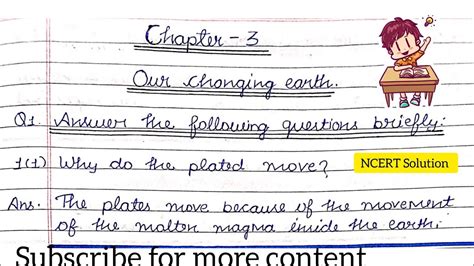 Chapter - 3
Our changing earth.
Q1. Answer the following questions briefly:
1(1) Why do the plated move?
NCERT Solution
Ans. The plates move because of the movement
of the molten magma inside the earth.
Subscribe for more content